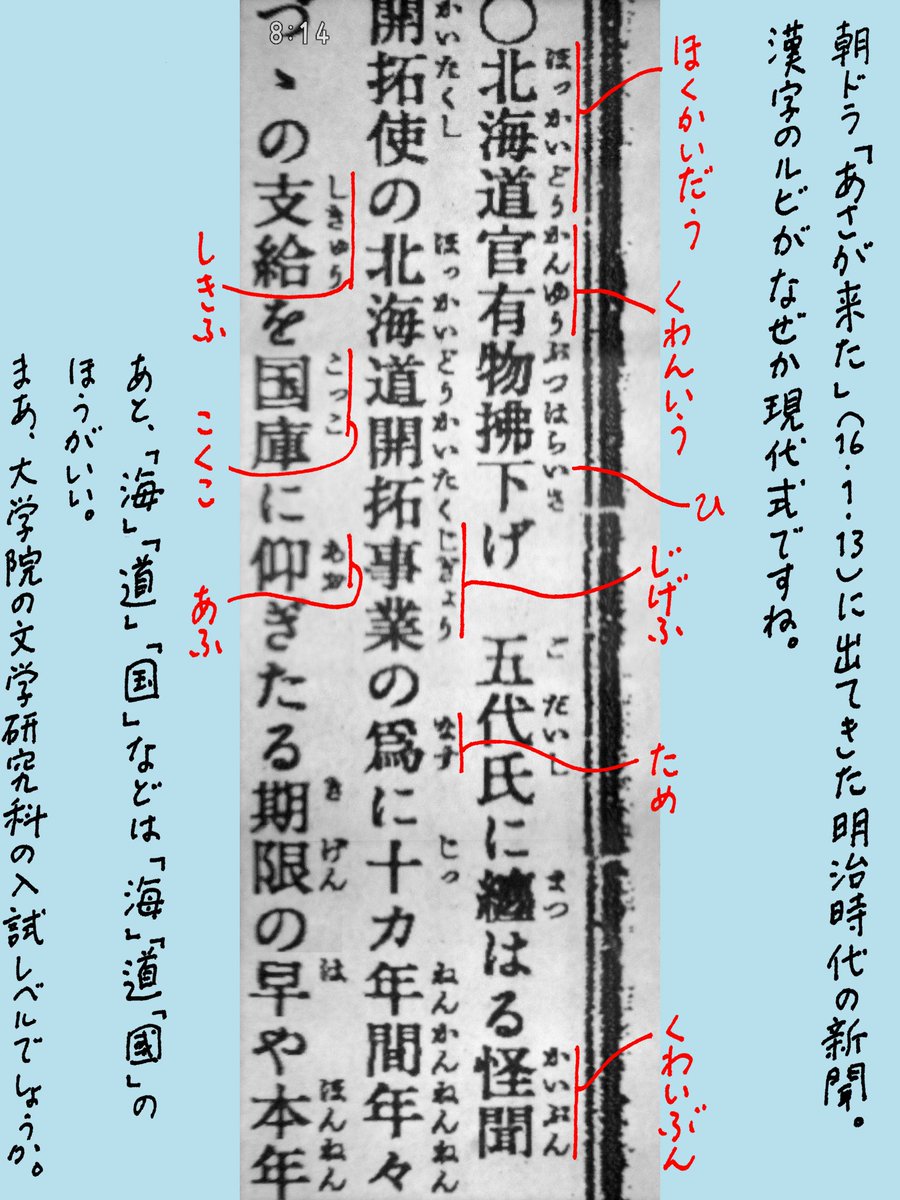 朝ドラ「あさが来た」(16・1・13)に出てきた明治時代の新聞。
漢字のルビがなぜか現代式ですね。
ほくかいだう
くわんいう
ひ
じげふ
ため
くわいぶん
○北海道官有物拂下げ 五代氏に纏はる怪聞
ほっかいどうかんゆうぶつはらいさ ごだいし まつ かいぶん
開拓使の北海道開拓事業の爲に十カ年間年々
かいたくし ほっかいどうかいたくじぎょう なす じっ ねんかんねんねん
づゝの支給を国庫に仰ぎたる期限の早や本年
しきゅう こっこ あお きげん は ほんねん
8:14
しきふ
こくこ
あふ
あと、「海」「道」「国」などは「海」「道」「國」の
ほうがいい。
まあ、大学院の文学研究科の入試レベルでしょうか。